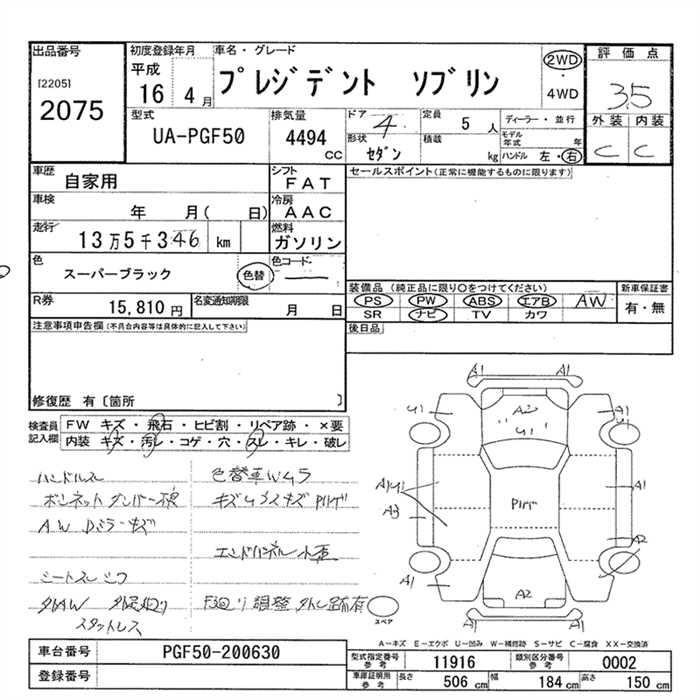 出品番号
[2205]
2075
初度登録年月
平成
16 4月
車名・グレード
プレジデント ソブリン
2WD
・
4WD
評価点
3.5
外装 内装
C C
型式
UA-PGF50
排気量
4494
CC
ドア
4
形状
セダン
定員
5 人
積載
kg
ディーラー・並行
モデル年式 年
ハンドル 左・右
車歴
自家用
シフト
FAT
車検
年 月( 日)
冷房
AAC
走行
13万5千346 km
燃料
ガソリン
色
スーパーブラック
色替
色コード
R券
15,810 円
名変通知期限
月 日
セールスポイント(正常に機能するものに限ります)
装備品 (純正品に限り○をつけてください)
PS PW ABS エアB AW
SR ナビ TV カワ
新車保証書
有・無
後日品
注意事項申告欄(不具合内容等は具体的に記入して下さい)
修復歴 有〔箇所 〕
検査員
記入欄
FW キズ・飛石・ヒビ割・リペア跡・×要
内装 キズ・汚レ・コゲ・穴・スレ・キレ・破レ
ハンドルスレ
色替車Wムラ
ボンネット
AW Dミラーキズ
エンドパネル小歪
シートスレシワ
下廻り調整
スタットレス
A1 A1
U1 A2 A1
U1
A1U1
A3
Pハゲ
A1
A2
A1
A2
A1 A1
スペア
A-キズ E-エクボ U-凹み W-補修跡 S-サビ C-腐食 XX-交換済
車台番号
PGF50-200630
登録番号
型式指定番号
参考
11916
類別区分番号
参考
0002
車庫証明用
参考
長さ 506 cm
幅 184 cm
高さ 150 cm